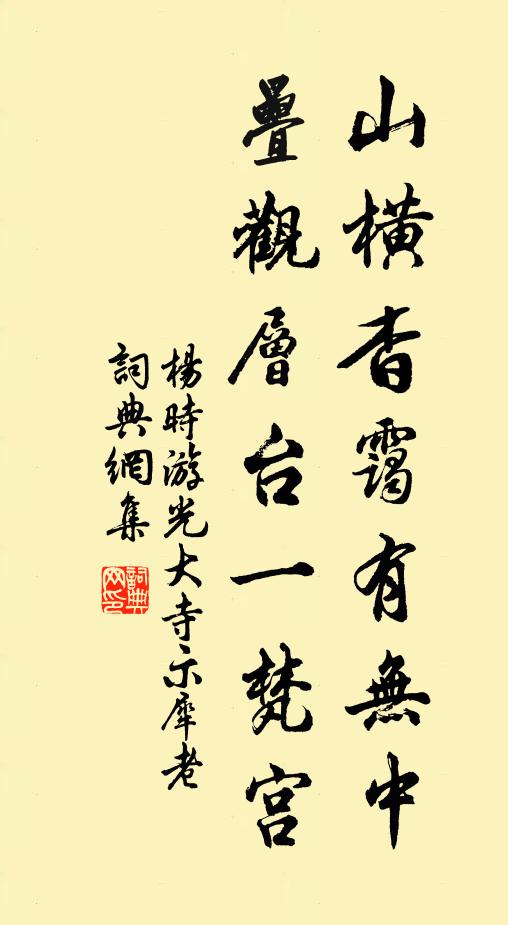 山橫杳靄有無中
疊觀層台一梵宮
楊時游光大寺示犀老
詞典網集
詞典
网印